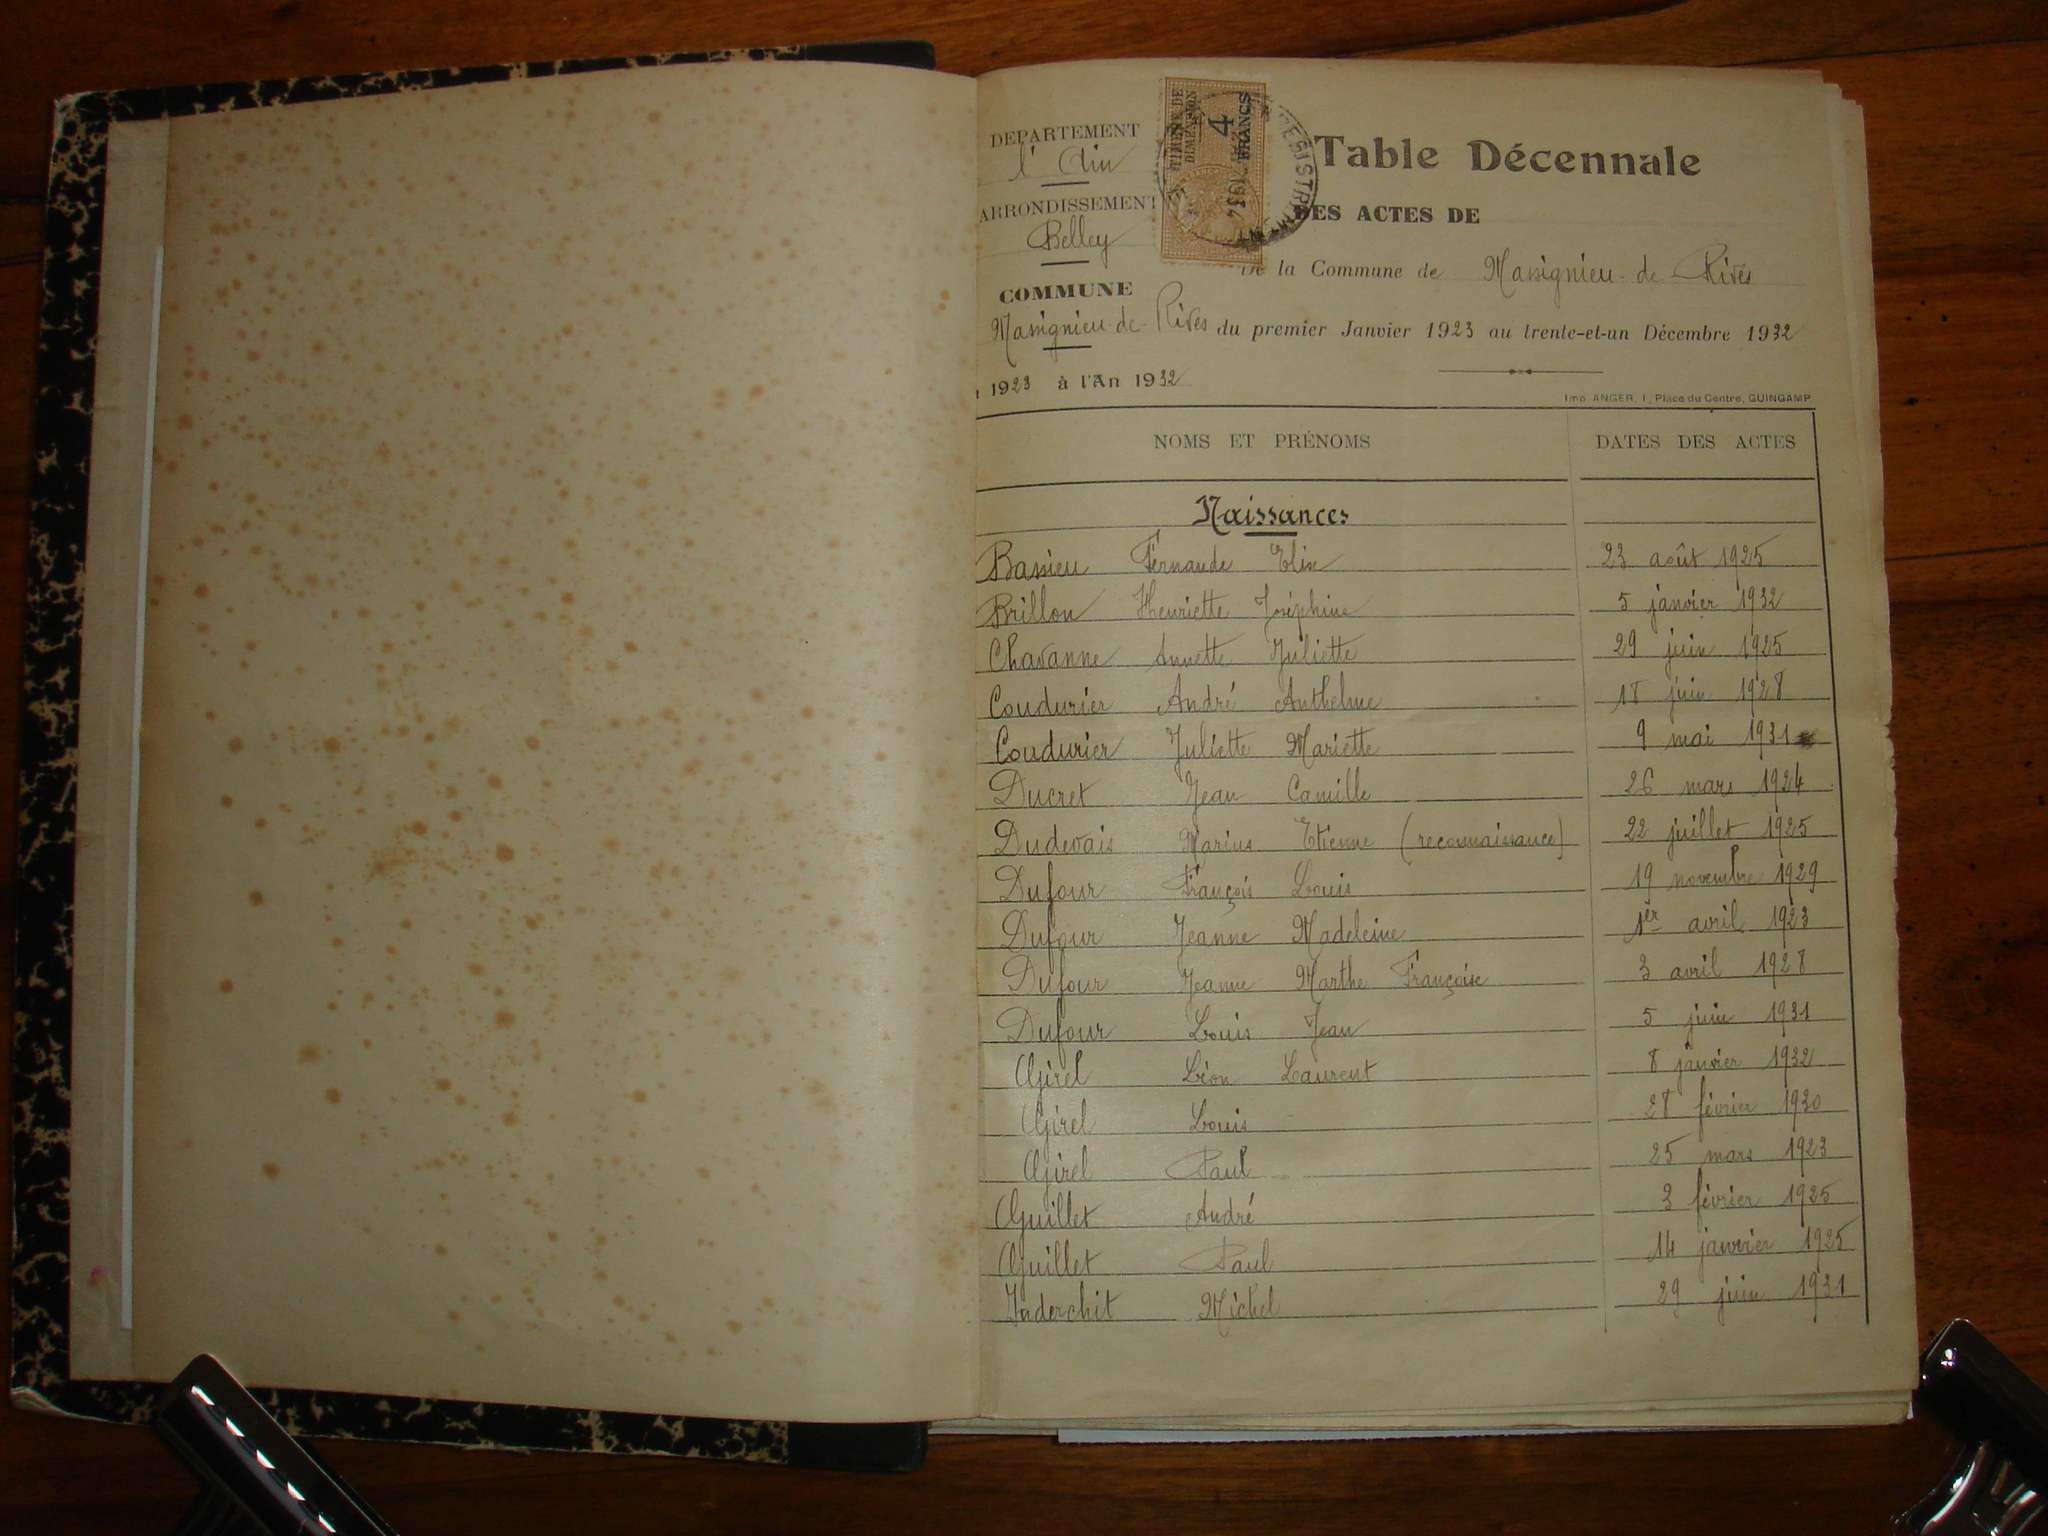 DEPARTEMENT
l' Ain
ARRONDISSEMENT
Belley
COMMUNE
Massignieu-de-Rives
1923 à l'An 1932
TIMBRE DE
DIMENSION
4
FRANCS
1934
Table Décennale
DES ACTES DE
De la Commune de Massignieu-de-Rives
du premier Janvier 1923 au trente-et-un Décembre 1932
Imp. ANGER, 1, Place du Centre, GUINGAMP
NOMS ET PRÉNOMS DATES DES ACTES
Naissances
Bassieu Fernande Elise 23 août 1925
Brillon Henriette Joséphine 5 janvier 1932
Chavanne Annette Juliette 29 juin 1925
Coudurier André Anthelme 18 juin 1928
Coudurier Juliette Mariette 9 mai 1931
Ducret Jean Camille 26 mars 1924
Dudevais Marius Etienne (reconnaissance) 22 juillet 1925
Dufour François Louis 19 novembre 1929
Dufour Jeanne Madeleine 1er avril 1923
Dufour Jeanne Marthe Françoise 3 avril 1928
Dufour Louis Jean 5 juin 1931
Girel Léon Laurent 8 janvier 1932
Girel Louis 28 février 1930
Girel Paul 25 mars 1923
Guillet André 3 février 1925
Guillet Paul 14 janvier 1925
Inderchit Michel 29 juin 1931